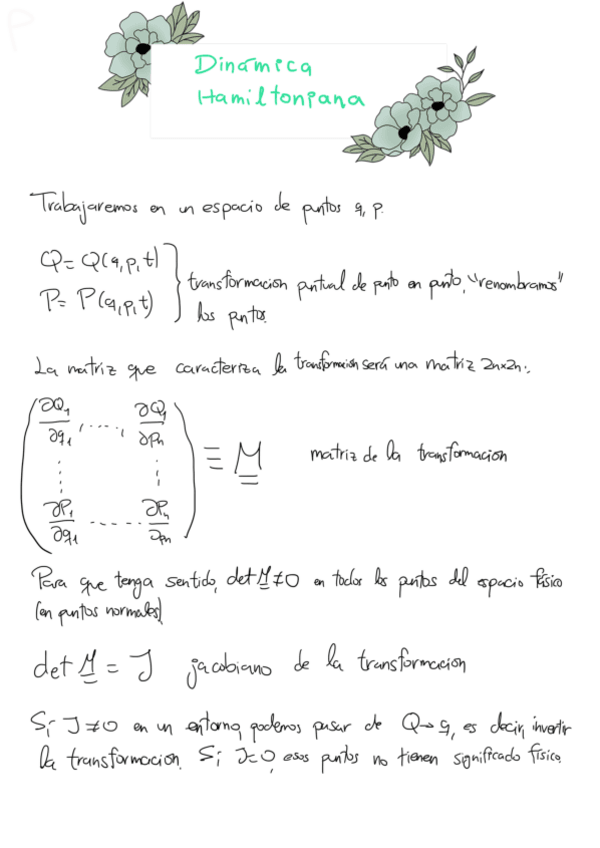 Dinámica
Hamiltoniana
Trabajaremos en un espacio de puntos q, p.
Q = Q(q,p,t)
P = P(q,p,t)
transformacion puntual de punto en punto, "renombramos"
los puntos.
La matriz que caracteriza la transformación será una matriz 2n×2n:
∂Q₁/∂q₁ , ..... , ∂Q₁/∂pₙ
∂P₁/∂q₁ ...... ∂Pₙ/∂pₙ
≡ M
matriz de la transformacion
Para que tenga sentido, det M ≠ 0 en todos los puntos del espacio físico
(en puntos normales)
det M = J jacobiano de la transformacion
Si J ≠ 0 en un entorno, podemos pasar de Q → q, es decir, invertir
la transformacion. Si J=0, esos puntos no tienen significado físico.